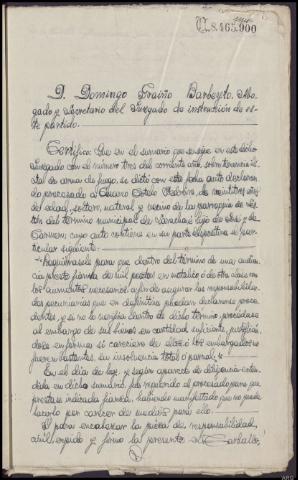 U.8.465.900
D. Domingo Fraiño Barbeyto, Abo-
gado y Secretario del Juzgado de instrucción de es-
te partido.
Certifico: Que en el sumario que se sigue en este dicho
Juzgado con el número tres del corriente año, sobre tenencia
de arma de fuego, se dictó con esta fecha auto declaran-
do procesado a Cesáreo de veintitres años
de edad, soltero, natural y vecino de la parroquia de
del termino municipal de hijo de José y de
Carmen, cuyo auto contiene en su parte dispositiva el par-
ticular siguiente:
"Requiérasele para que dentro del término de una audien-
cia preste fianza de mil pesetas en metálico ó de otra clase con
los aumentos necesarios, a fin de asegurar las responsabilida-
des pecuniarias que en definitiva puedan declararse proce-
dentes, y si no lo verifica dentro de dicho término, procédase
al embargo de sus bienes en cantidad suficiente, justificán-
dose en forma si careciere de ellos ó los embargados no
fueren bastantes, su insolvencia total ó parcial."
En el día de hoy, y según aparece de diligencia exten-
dida en dicho sumario, fué requerido el procesado para que
prestase indicada fianza, habiendo manifestado que no puede
hacerlo por carecer de medios para ello.
Y para encabezar la pieza de responsabilidad
civil, expido y firmo la presente en Carballo,